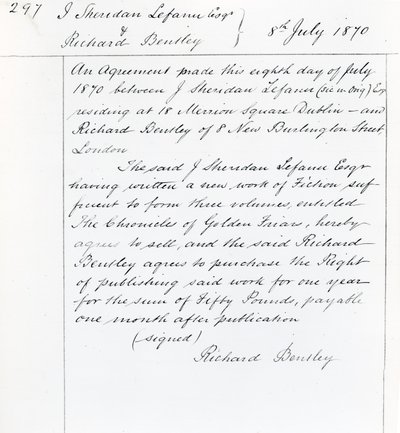 297 J Sheridan Lefanu Esqr
& } 8th July 1870
Richard Bentley
An Agreement made this eighth day of July
1870 between J Sheridan Lefanu (sic in orig) Esqr
residing at 18 Merrion Square Dublin – and
Richard Bentley of 8 New Burlington Street
London
The said J Sheridan Lefanu Esqr
having written a new work of Fiction suf-
ficient to form three volumes, entitled
The Chronicles of Golden Friars, hereby
agrees to sell, and the said Richard
Bentley agrees to purchase the Right
of publishing said work for one year
for the sum of Fifty Pounds, payable
one month after publication
(signed)
Richard Bentley